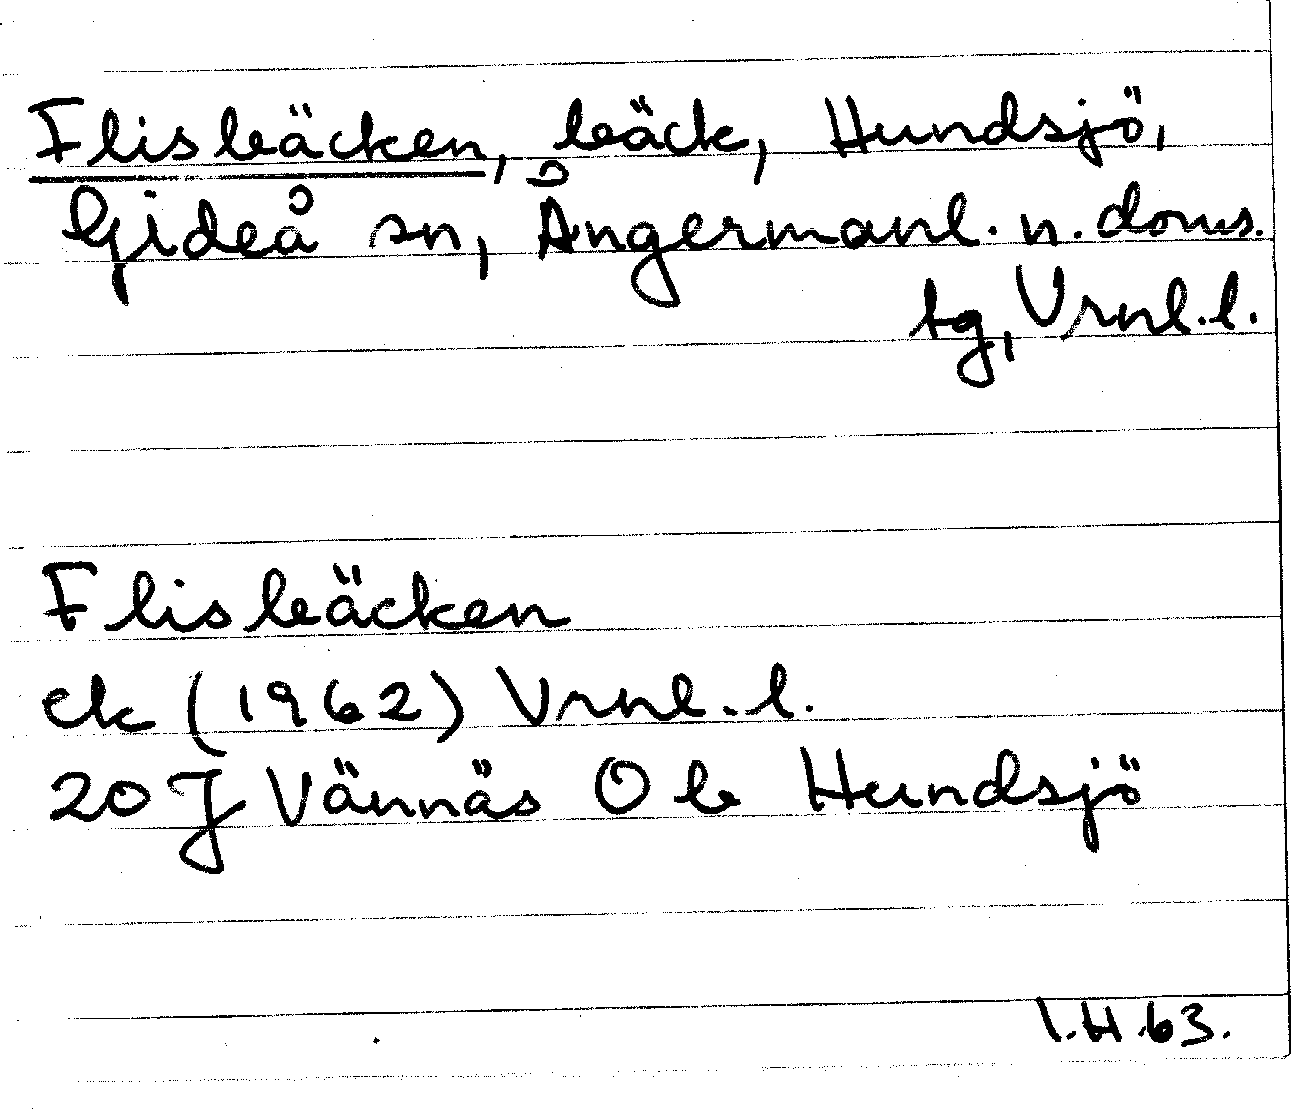 Flisbäcken, bäck, Hundsjö,
Gideå sn, Ångermanl. n. doms.
tg, Vrnl. l.
Flisbäcken
ek (1962) Vrnl. l.
20 J Vännäs O b Hundsjö
I.H.63.